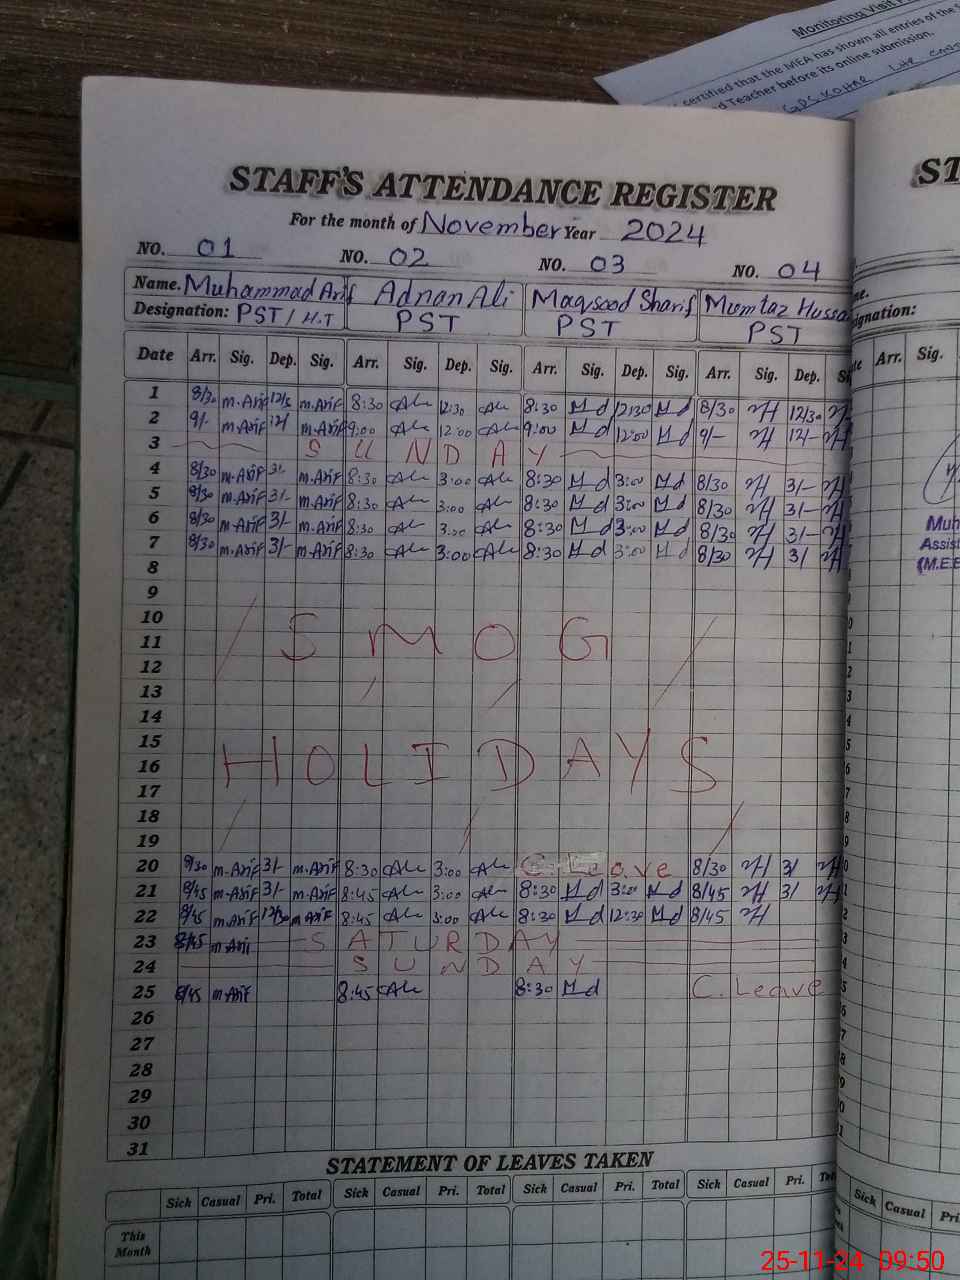 Monitoring Visit
certified that the MEA has shown all entries of the
d Teacher before its online submission.
STAFF'S ATTENDANCE REGISTER
For the month of November Year 2024
NO. 01 NO. 02 NO. 03 NO. 04
Name. Muhammad Arif Adnan Ali Maqsood Sharif Mumtaz Hussa
Designation: PST / H.T PST PST PST
Date Arr. Sig. Dep. Sig. Arr. Sig. Dep. Sig. Arr. Sig. Dep. Sig. Arr. Sig. Dep.
1 8/30 M.Arif 12/5 M.Arif 8:30 12:30 8:30 Md 12:30 Md 8/30 12/30
2 9/- M.Arif 12/ M.Arif 9:00 12:00 9:00 Md 12:00 Md 9/- 12/-
3 SUNDAY
4 8/30 M.Arif 3/- M.Arif 8:30 3:00 8:30 Md 3:00 Md 8/30 3/-
5 8/30 M.Arif 3/- M.Arif 8:30 3:00 8:30 Md 3:00 Md 8/30 3/-
6 8/30 M.Arif 3/- M.Arif 8:30 3:00 8:30 Md 3:00 Md 8/30 3/-
7 8/30 M.Arif 3/- M.Arif 8:30 3:00 8:30 Md 3:00 Md 8/30 3/
8
9
10
11 SMOG
12
13
14
15
16 HOLIDAYS
17
18
19
20 8/30 M.Arif 3/- M.Arif 8:30 3:00 C. Leave 8/30 3/
21 8/45 M.Arif 3/- M.Arif 8:45 3:00 8:30 Md 3:00 Md 8/45 3/
22 8/45 M.Arif 12/30 M.Arif 8:45 3:00 8:30 Md 12:30 Md 8/45
23 8/45 M.Ari SATURDAY
24 SUNDAY
25 8/45 M.Arif 8:45 8:30 Md C. Leave
26
27
28
29
30
31
STATEMENT OF LEAVES TAKEN
Sick Casual Pri. Total Sick Casual Pri. Total Sick Casual Pri. Total Sick Casual Pri.
This
Month
ST
ignation:
Arr. Sig.
Muh
Assist
(M.E.E
Sick Casual
25-11-24 09:50